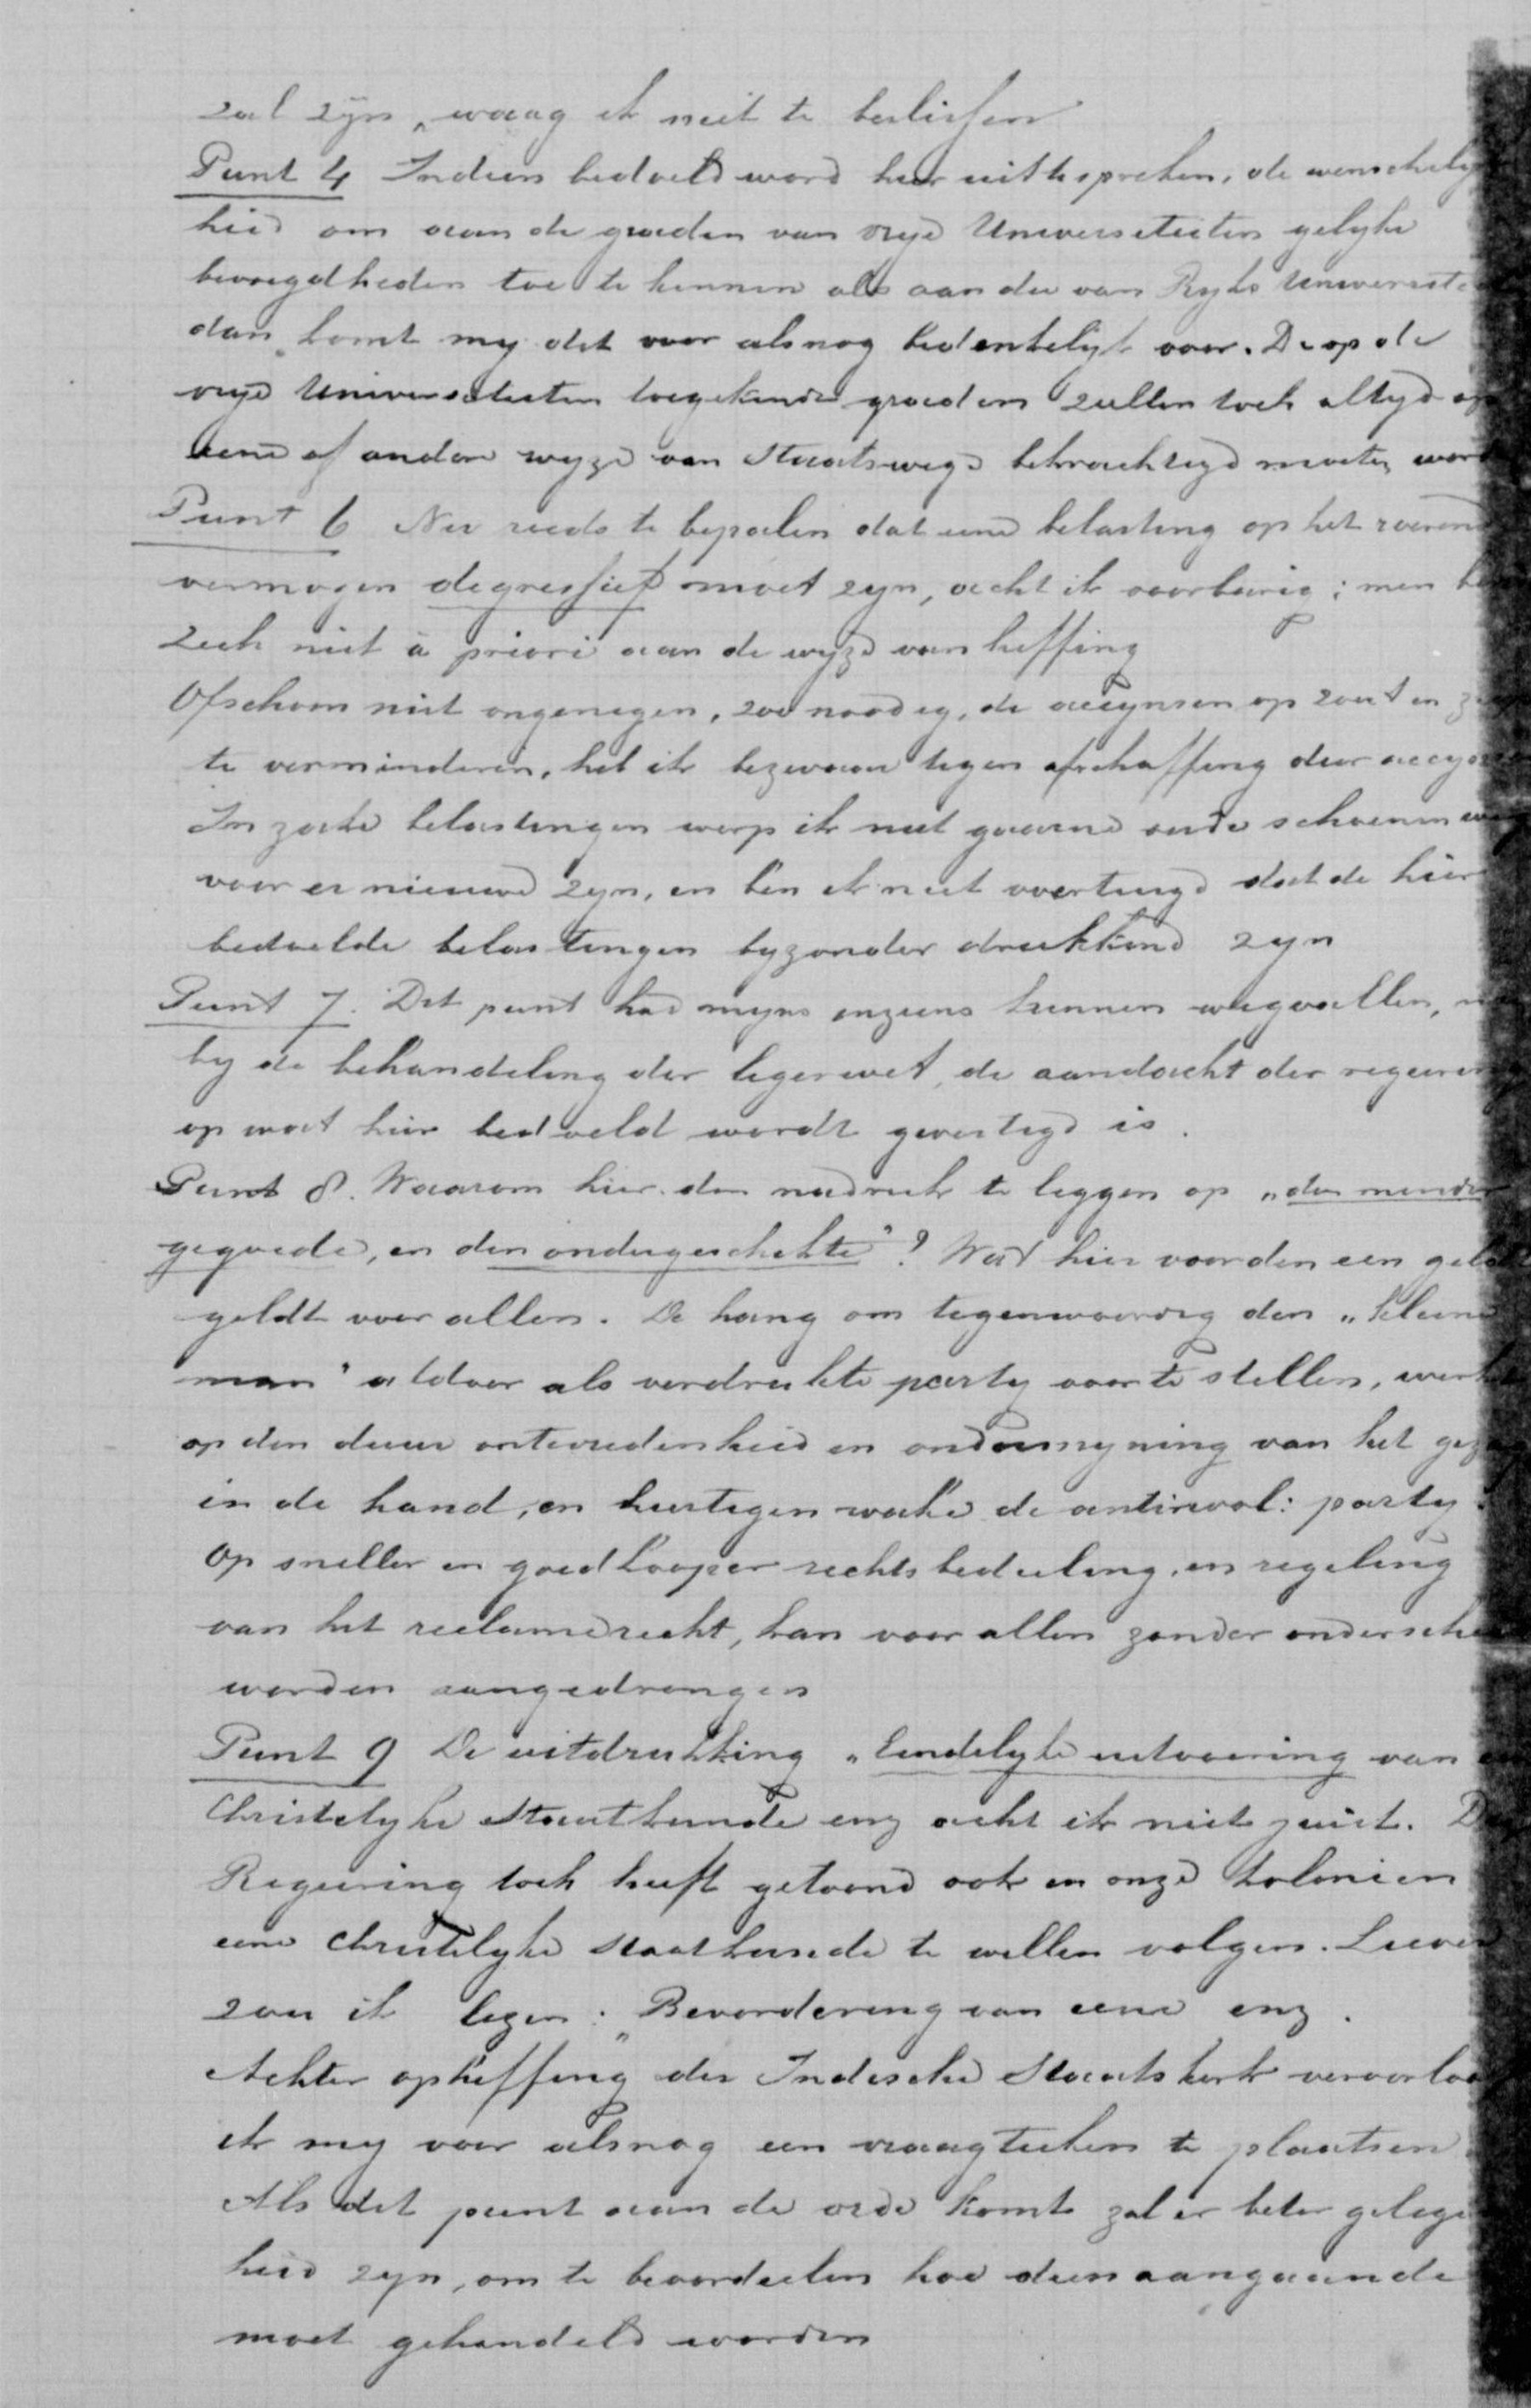 zal zyn, waag ik niet te beslissen
Punt 4 Indien bedoeld word hier uittespreken, de wenschelyk
heid om aan de graden van vrye Universiteiten gelyke
bevoegdheden toe te kennen als aan die van Ryks Universite
dan komt my dit voor alsnog bedenkelyk voor. De op de
vrye Universiteiten toegekende graden zullen toch altyd op
eene of andere wyze van Staatswege bekrachtigd moeten word
Punt 6 Nu reeds te bepalen dat eene belasting op het roerend
vermogen degressief moet zyn, acht ik voorbarig; men
zich niet à priori aan de wyze van heffing
Ofschoon niet ongenegen, zoo noodig, de accynsen op zout en
te verminderen, heb ik bezwaar tegen afschaffing dier accyn
In zake belastingen werp ik niet gaarne oude schoenen weg
voor er nieuwe zyn, en ben ik niet overtuigd dat de hier
bedoelde belastingen byzonder drukkend zyn
Punt 7. Dit punt had myns inziens kunnen wegvallen,
by de behandeling der legerwet, de aandacht der regeering
op wat hier bedoeld wordt gevestigd is.
Punt 8. Waarom hier den nadruk te leggen op „den minder
gegoede, en den ondergeschikte"? Wat hier voor den een geld
geldt voor allen. De hang om tegenwoordig den „kleine
man" aldoor als verdrukte party voor te stellen, werk
op den duur ontevredenheid en ondermyning van het gez
in de hand, en hiertegen wake de antirevol: party.
Op sneller en goedkooper rechtsbedeeling, en regeling
van het reclamerecht, kan voor allen zonder ondersche
worden aangedrongen
Punt 9 De uitdrukking „Eindelyke uitvoering van
Christelyke Staatkunde enz acht ik niet juist. D
Regeering toch heeft getoond ook in onze kolonien
eene christelyke staatkunde te willen volgen. Liever
zou ik lezen: „Bevordering van eene enz.
Achter opheffing der Indische Staatskerk veroorloo
ik my voor alsnog een vraagteeken te plaatsen.
Als dit punt aan de orde komt zal er beter gelege
heid zyn, om te beoordeelen hoe dienaangaande
moet gehandeld worden